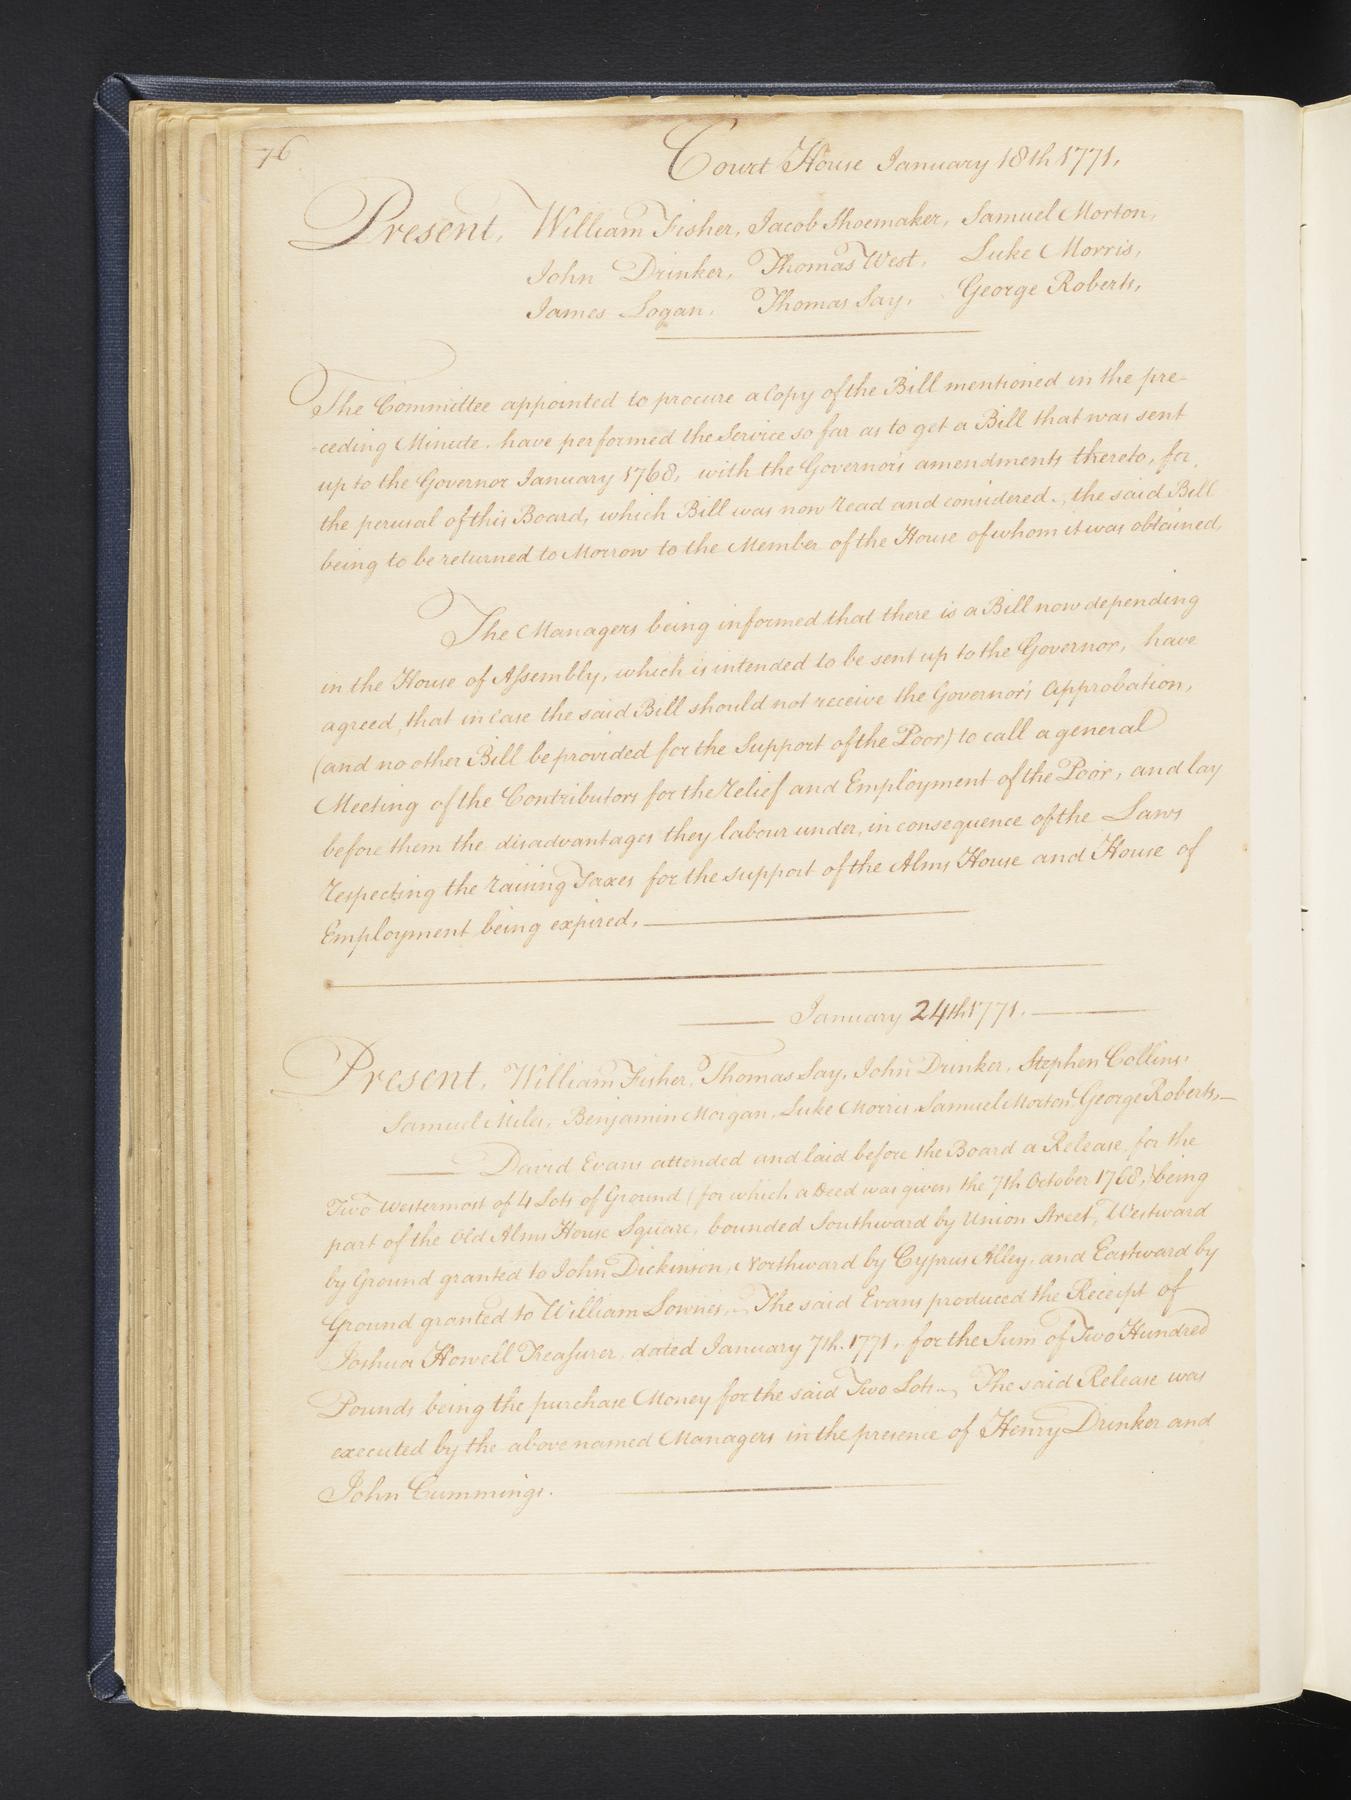 76
Court House January 18th 1771,
Present, William Fisher, Jacob Shoemaker, Samuel Morton,
John Drinker, Thomas West, Luke Morris,
James Logan, Thomas Say, George Roberts,
The Committee appointed to procure a Copy of the Bill mentioned in the pre-
-ceding Minute, have performed the Service so far as to get a Bill that was sent
up to the Governor January 1768, with the Governor's amendments thereto, for
the perusal of this Board, which Bill was now read and considered, the said Bill
being to be returned to Morrow to the Member of the House of whom it was obtained,
The Managers being informed that there is a Bill now depending
in the House of Assembly, which is intended to be sent up to the Governor, have
agreed, that in Case the said Bill should not receive the Governor's Approbation,
(and no other Bill be provided for the Support of the Poor) to call a general
Meeting of the Contributors for the Relief and Employment of the Poor, and lay
before them the disadvantages they labour under, in consequence of the Laws
respecting the raising Taxes for the support of the Alms House and House of
Employment being expired,
January 24th 1771.
Present, William Fisher, Thomas Say, John Drinker, Stephen Collins,
Samuel Miles, Benjamin Morgan, Luke Morris, Samuel Morton, George Roberts,
David Evans attended and laid before the Board a Release, for the
Two Westermost of 4 Lots of Ground (for which a Deed was given the 7th October 1768,) being
part of the Old Alms House Square, bounded Southward by Union Street, Westward
by Ground granted to John Dickinson, Northward by Cyprus Alley, and Eastward by
Ground granted to William Lownes, The said Evans produced the Receipt of
Joshua Howell Treasurer, dated January 7th. 1771, for the Sum of Two Hundred
Pounds being the purchase Money for the said Two Lots The said Release was
executed by the above named Managers in the presence of Henry Drinker and
John Cummings.